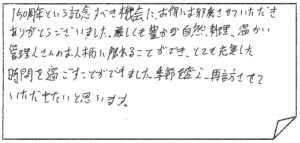 150周年という記念すべき機会に、お得にお邪魔させていただき
ありがとうございました。厳しくも豊かな自然、料理、温かい
管理人さんのお人柄に触れることができ、とても充実した
時間を過ごすことができました。季節を変え、再訪させて
いただきたいと思います。